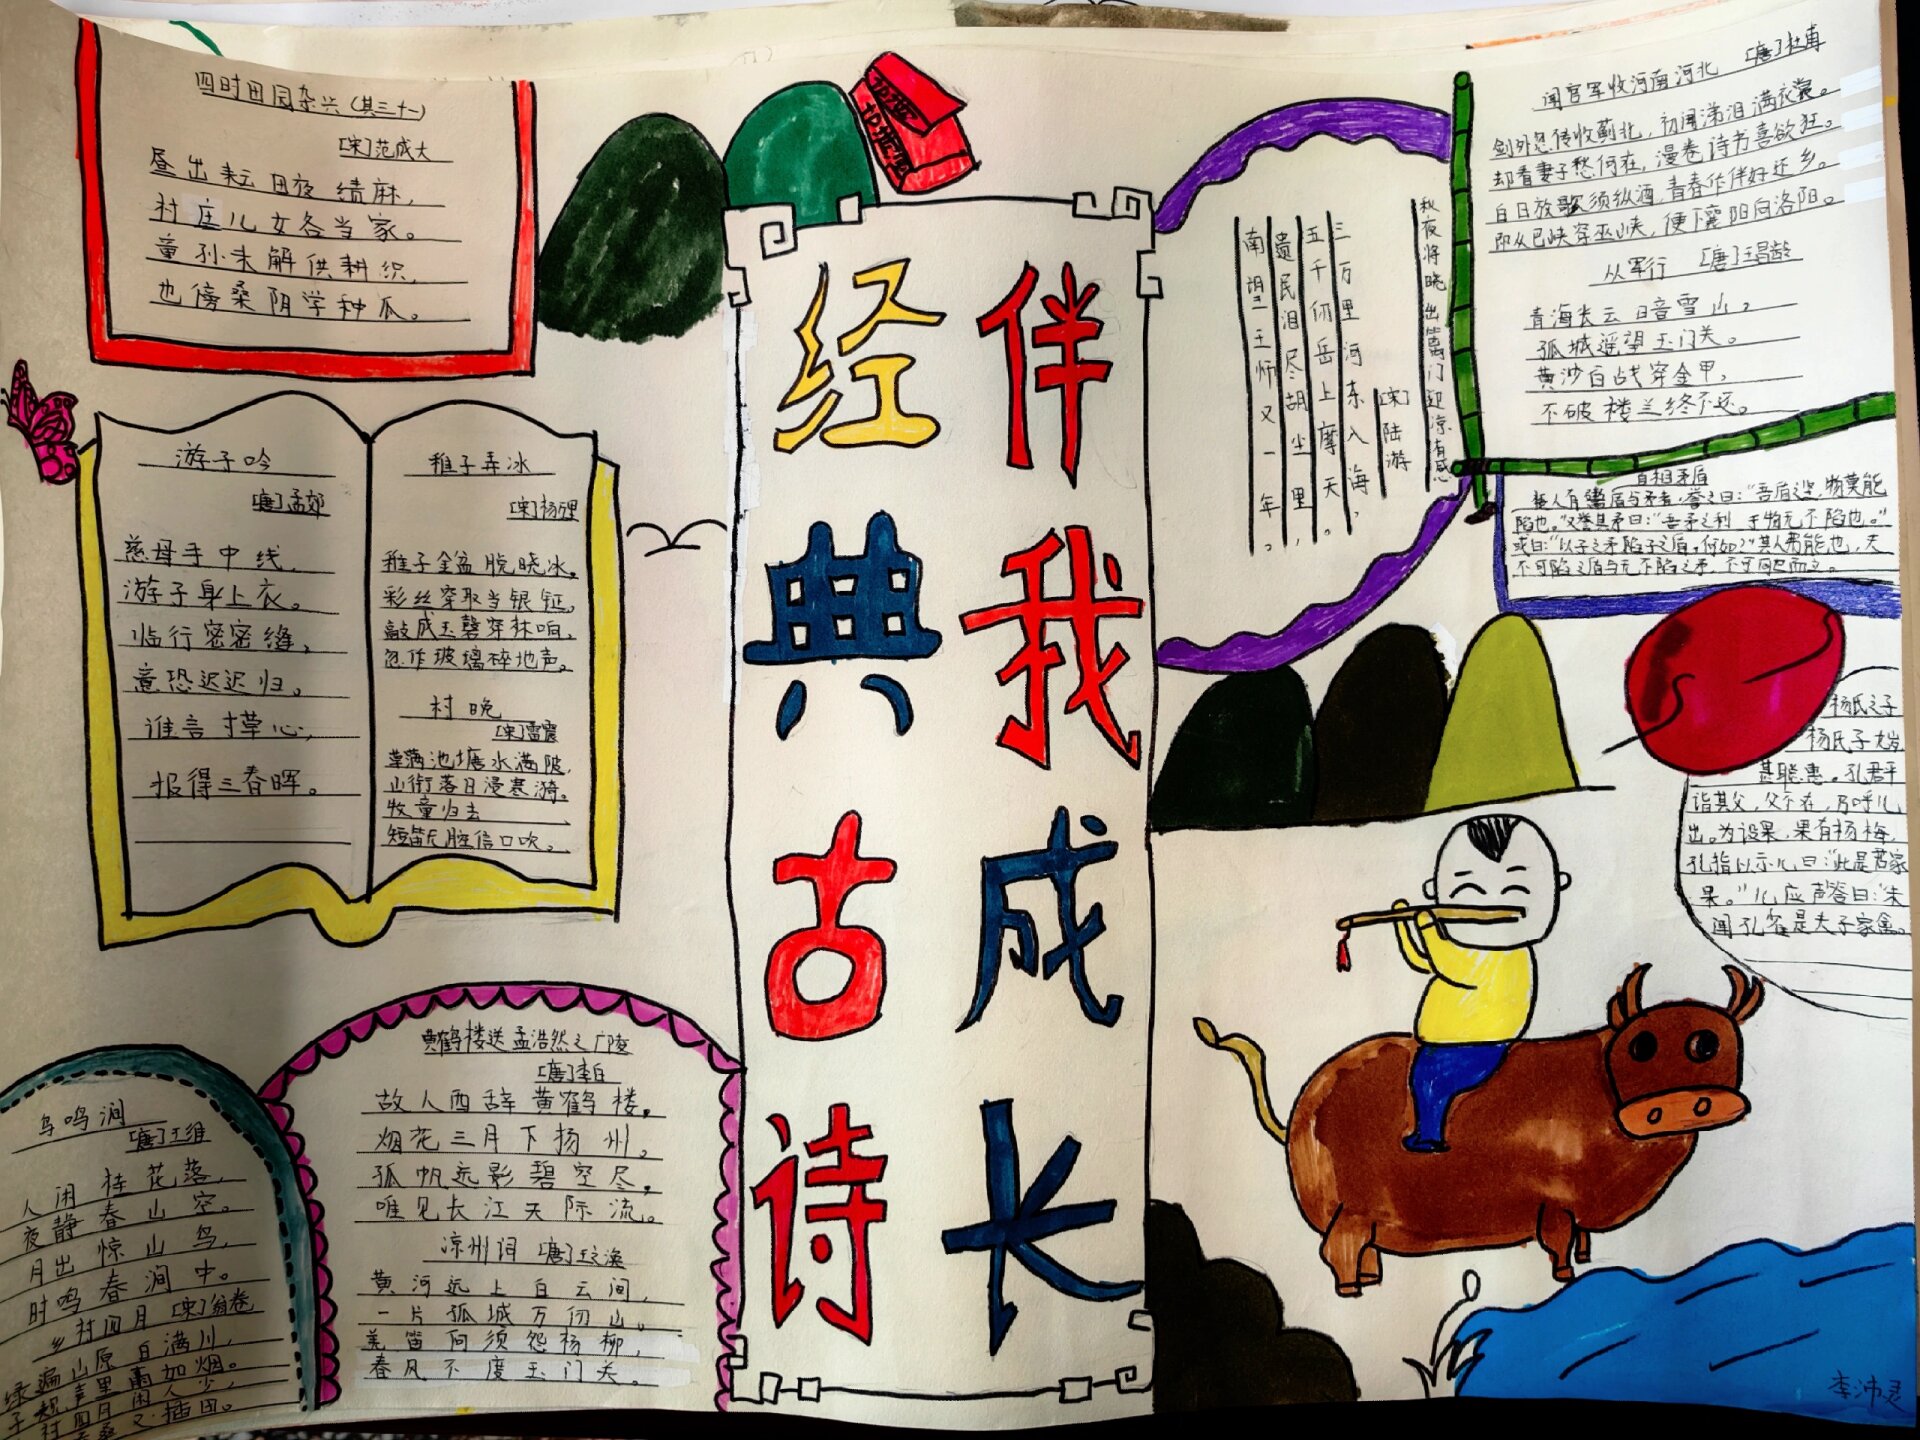 四时田园杂兴(其三十一)
[宋]范成大
昼出耘田夜绩麻,
村庄儿女各当家。
童孙未解供耕织,
也傍桑阴学种瓜。
游子吟
[唐]孟郊
慈母手中线,
游子身上衣。
临行密密缝,
意恐迟迟归。
谁言寸草心,
报得三春晖。
稚子弄冰
[宋]杨万里
稚子金盆脱晓冰,
彩丝穿取当银钲,
敲成玉磬穿林响,
忽作玻璃碎地声。
村晚
[宋]雷震
草满池塘水满陂,
山衔落日漫寒漪。
牧童归去
短笛无腔信口吹。
鸟鸣涧
[唐]王维
人闲桂花落,
夜静春山空。
月出惊山鸟,
时鸣春涧中。
乡村四月 [宋]翁卷
绿遍山原白满川,
子规声里雨如烟。
村四月闲人少,
桑又插田。
黄鹤楼送孟浩然之广陵
[唐]李白
故人西辞黄鹤楼,
烟花三月下扬州。
孤帆远影碧空尽,
唯见长江天际流。
凉州词 [唐]王之涣
黄河远上白云间,
一片孤城万仞山。
羌笛何须怨杨柳,
春风不度玉门关。
经典古诗
伴我成长
秋夜将晓出篱门迎凉有感
[宋]陆游
三万里河东入海,
五千仞岳上摩天。
遗民泪尽胡尘里,
南望王师又一年。
闻官军收河南河北 [唐]杜甫
剑外忽传收蓟北,初闻涕泪满衣裳。
却看妻子愁何在,漫卷诗书喜欲狂。
白日放歌须纵酒,青春作伴好还乡。
即从巴峡穿巫峡,便下襄阳向洛阳。
从军行 [唐]王昌龄
青海长云暗雪山,
孤城遥望玉门关。
黄沙百战穿金甲,
不破楼兰终不还。
自相矛盾
楚人有鬻盾与矛者,誉之曰:“吾盾之坚,物莫能
陷也。”又誉其矛曰:“吾矛之利,于物无不陷也。”
或曰:“以子之矛陷子之盾,何如?”其人弗能也,夫
不可陷之盾与无不陷之矛,不可同世而立。
杨氏之子
杨氏子九岁
甚聪惠。孔君平
诣其父,父不在,乃呼儿
出。为设果,果有杨梅,
孔指以示儿曰:“此是君家
果。”儿应声答曰:“未
闻孔雀是夫子家禽。
李沛灵